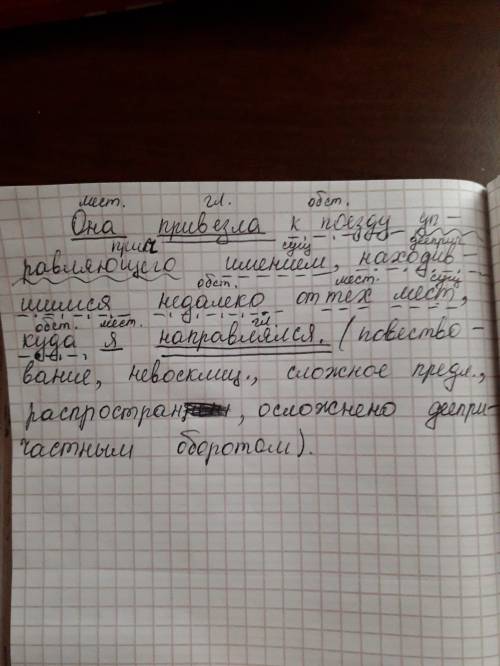 мест. гл. обст.
Она привезла к поезду уп-
прич сущ дееприч
равляющего имением, находив-
обст. мест. сущ
шимся недалеко от тех мест,
обст. мест. гл
куда я направлялся. (повество-
вание, невосклиц., сложное предл.,
распростран, осложнено деепри-
частным оборотом).